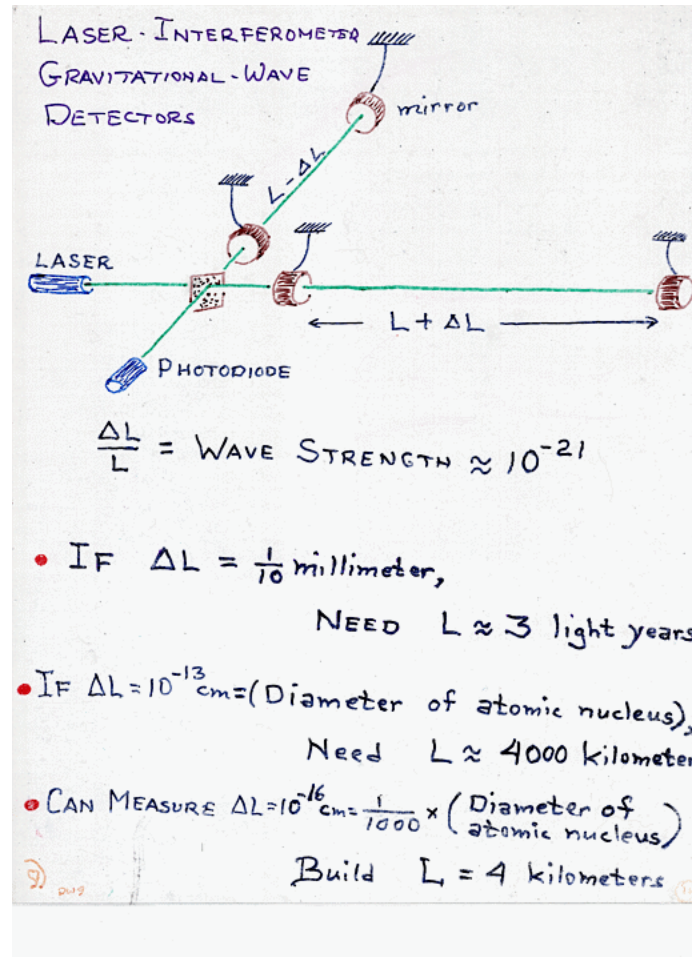 LASER-INTERFEROMETER
GRAVITATIONAL-WAVE
DETECTORS
mirror
L-ΔL
LASER
L + ΔL
PHOTODIODE
ΔL/L = WAVE STRENGTH ≈ 10⁻²¹
• IF ΔL = 1/10 millimeter,
NEED L ≈ 3 light years
• IF ΔL = 10⁻¹³ cm = (Diameter of atomic nucleus),
Need L ≈ 4000 kilometer
• CAN MEASURE ΔL = 10⁻¹⁶ cm = 1/1000 × (Diameter of
atomic nucleus)
Build L = 4 kilometers